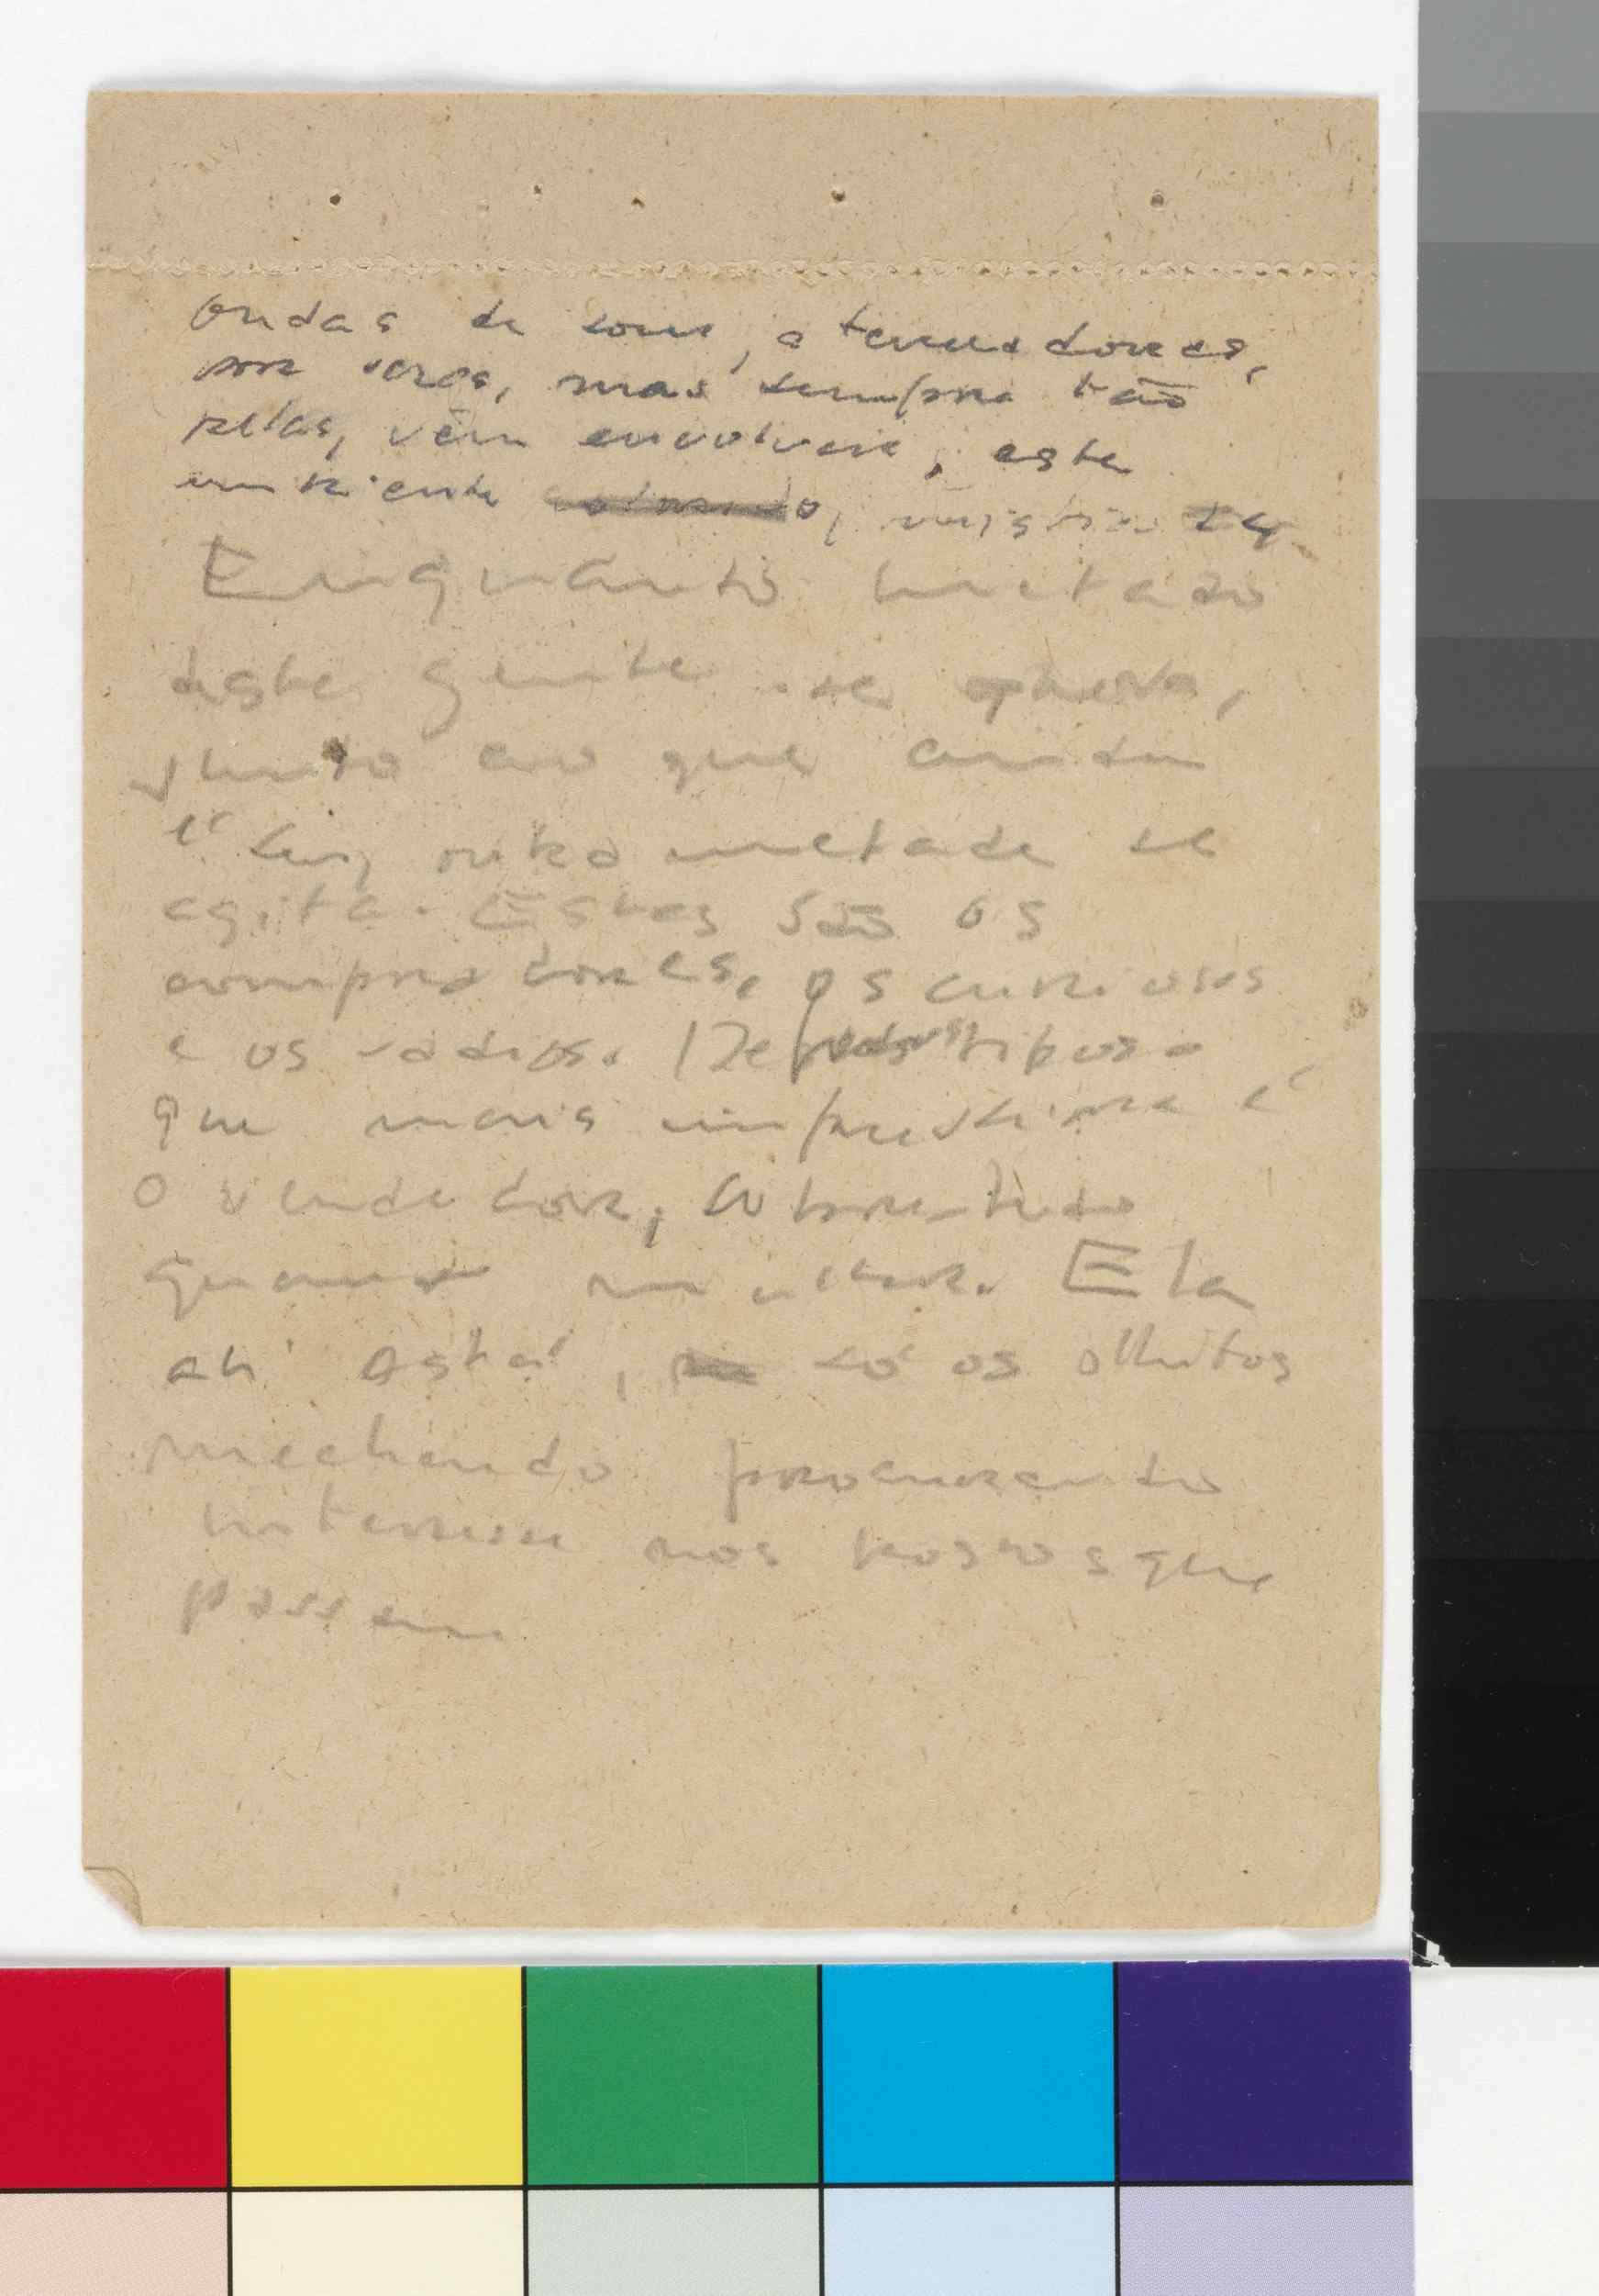 ondas de som, atenuadores,
por vezes, mas sempre tão
belas, vêm envolver, este
ambiente
Enquanto metade
desta gente se aquieta,
junto ao que ainda
é seu, outra metade se
agita. Estes são os
compradores, os curiosos
e os vadios. De todos tipos o
que mais impressiona é
o vendedor, sobretudo
quando mulher. Ela
ahi está, só os olhitos
mechendo procurando
interesse nos rostos que
passam